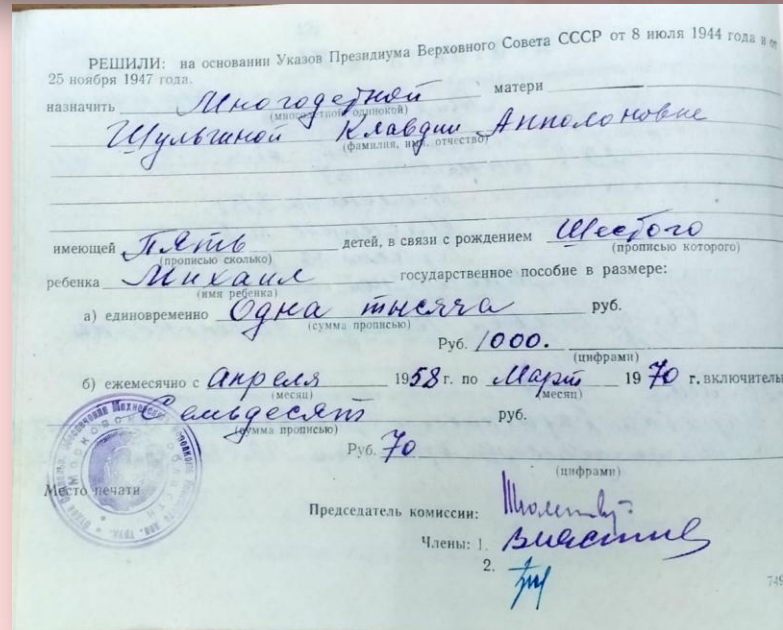 РЕШИЛИ: на основании Указов Президиума Верховного Совета СССР от 8 июля 1944 года и от
25 ноября 1947 года.
назначить Многодетной матери
(многодетной одинокой)
Шульгиной Клавдии Апполоновне
(фамилия, имя, отчество)
имеющей Пять детей, в связи с рождением Шестого
(прописью сколько) (прописью которого)
ребенка Михаил государственное пособие в размере:
(имя ребенка)
а) единовременно Одна тысяча руб.
(сумма прописью)
Руб. 1000.
(цифрами)
б) ежемесячно с Апреля 1958 г. по Март 1970 г. включитель
(месяц) (месяц)
Семьдесят руб.
(сумма прописью)
Руб. 70
(цифрами)
Место печати
Председатель комиссии:
Члены: 1.
2.
749